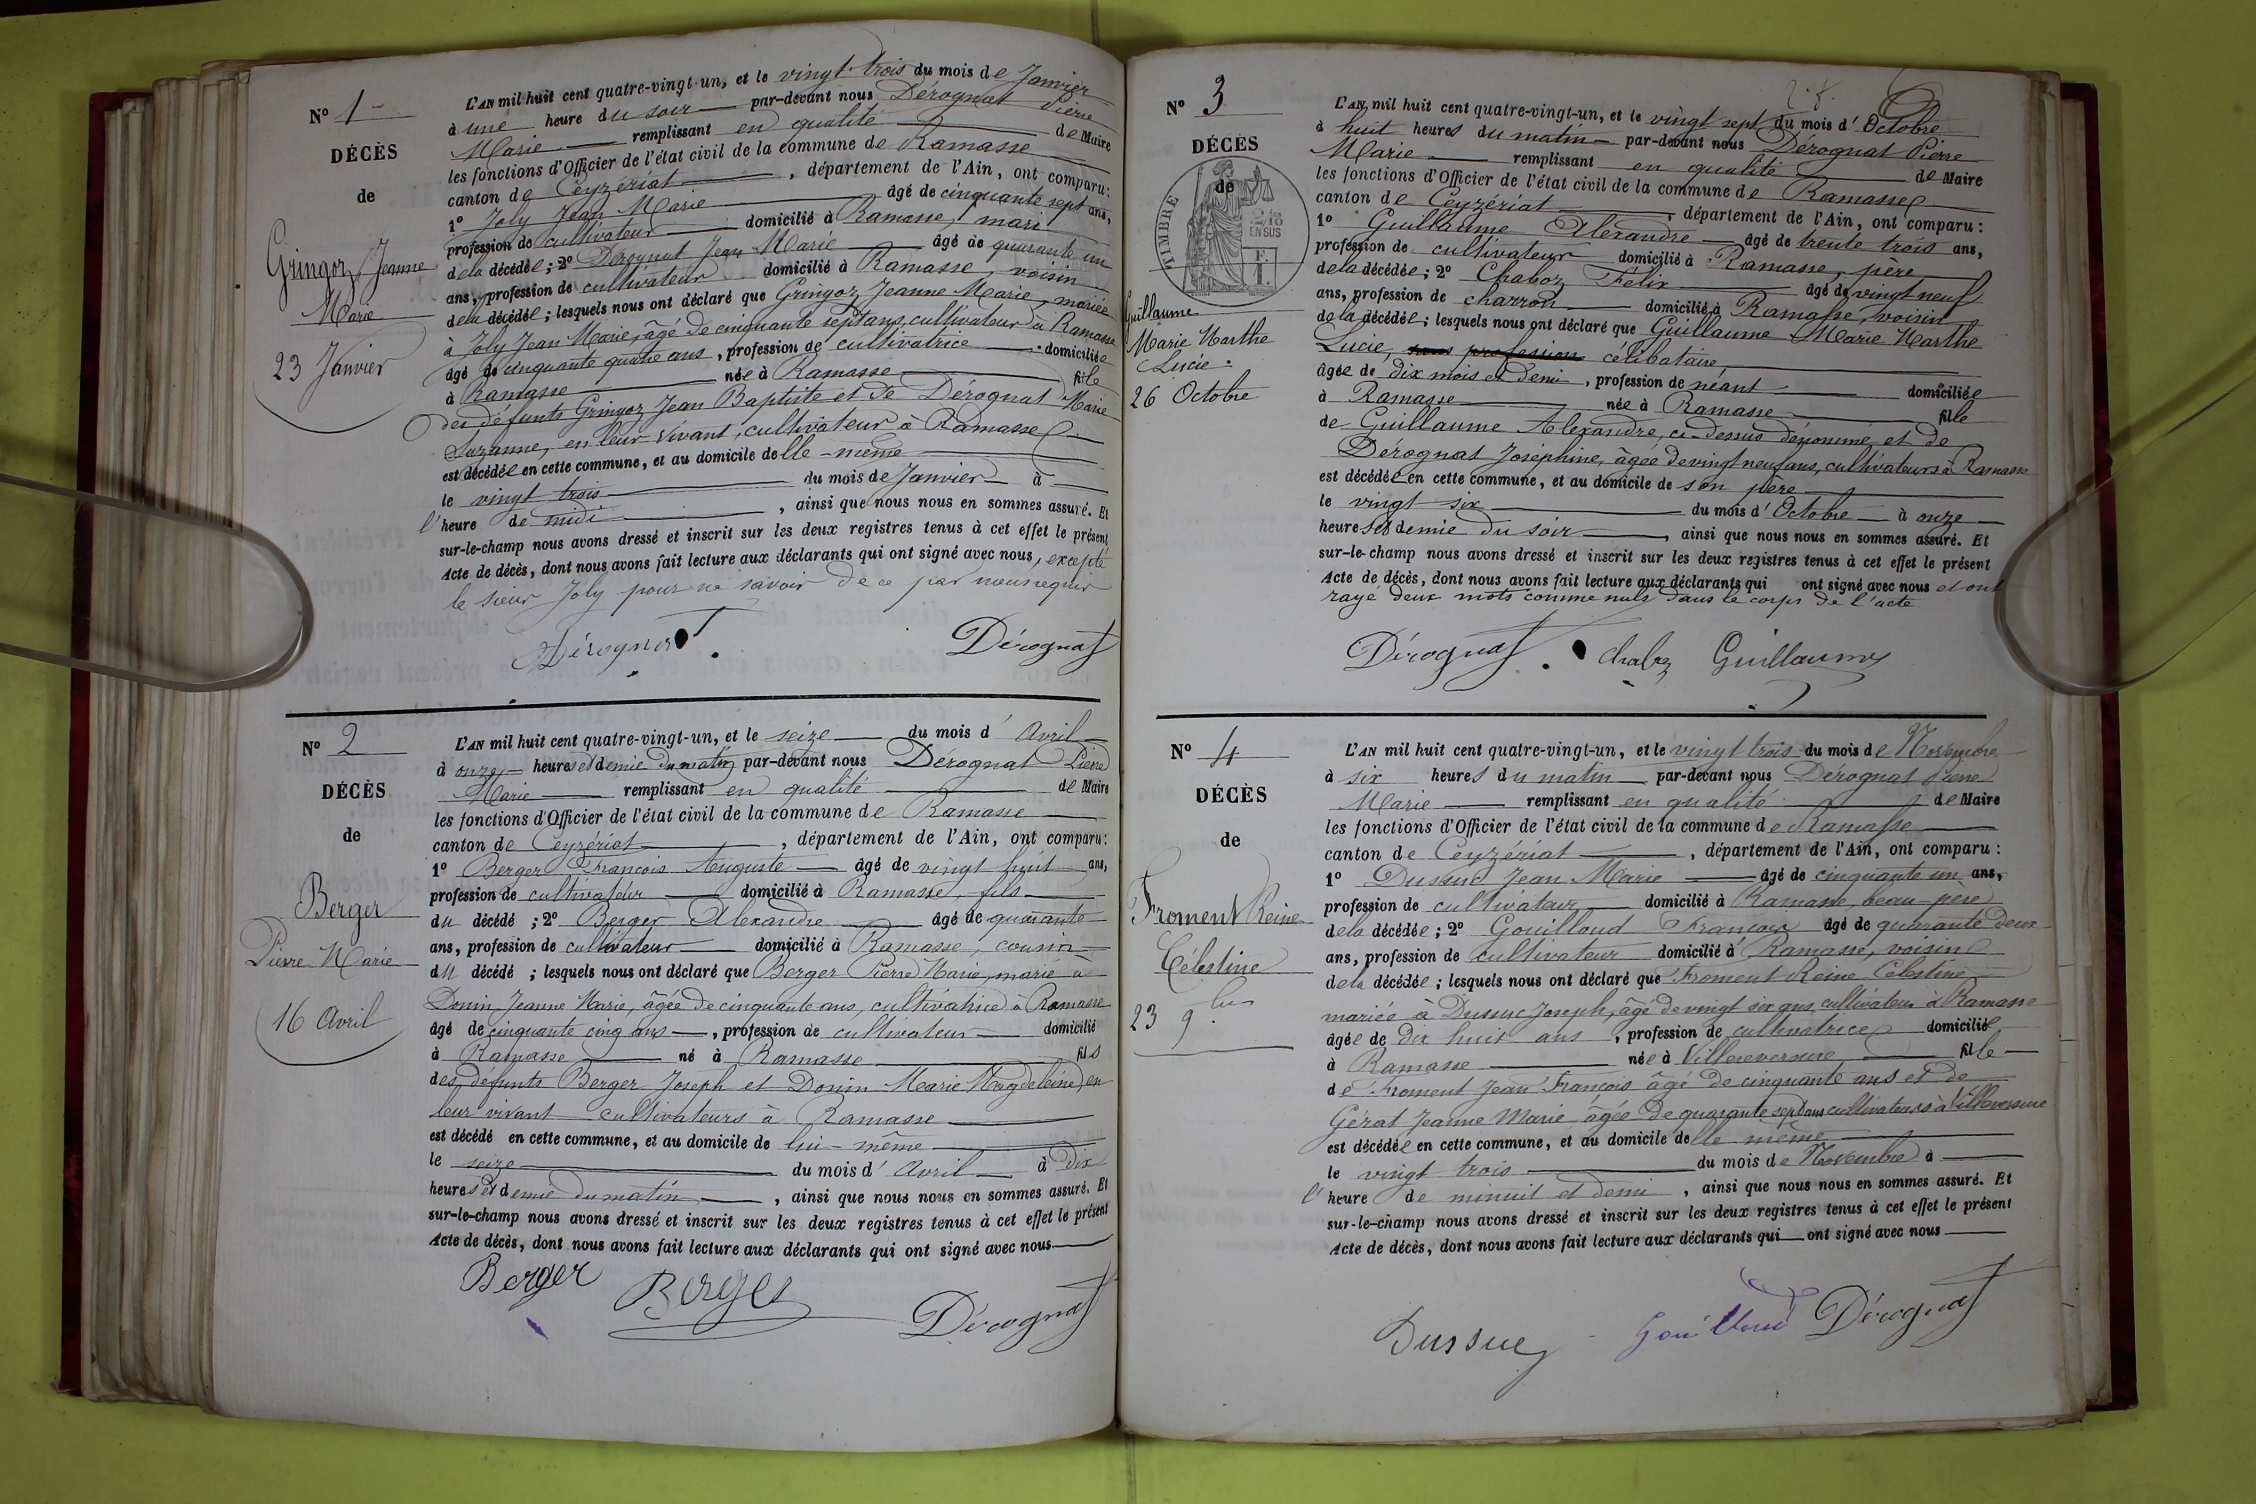 N° 1
DÉCÈS
de
Gringoz Jeanne
Marie
23 Janvier
L'AN mil huit cent quatre-vingt-un, et le vingt-trois du mois de Janvier
à une heure du soir par-devant nous Dérognat Pierre
Marie remplissant en qualité de Maire
les fonctions d'Officier de l'état civil de la commune de Ramasse
canton de Ceyzériat, département de l'Ain, ont comparu:
1° Joly Jean Marie âgé de cinquante sept ans,
profession de cultivateur domicilié à Ramasse, mari
dela décédée; 2° Dérognat Jean Marie âgé de quarante un
ans, profession de cultivateur domicilié à Ramasse, voisin
dela décédée; lesquels nous ont déclaré que Gringoz Jeanne Marie, mariée
à Joly Jean Marie, âgé de cinquante sept ans, cultivateur à Ramasse
âgé de cinquante quatre ans, profession de cultivatrice domiciliée
à Ramasse née à Ramasse fille
des défunts Gringoz Jean Baptiste et de Dérognat Marie
Suzanne, en leur vivant, cultivateur à Ramasse
est décédée en cette commune, et au domicile delle-même
le vingt trois du mois de Janvier à
l'heure de midi, ainsi que nous nous en sommes assuré. Et
sur-le-champ nous avons dressé et inscrit sur les deux registres tenus à cet effet le présent
Acte de décès, dont nous avons fait lecture aux déclarants qui ont signé avec nous, excepté
le sieur Joly pour ne savoir de ce par nous requir
Dérognat Dérognat
N° 2
DÉCÈS
de
Berger
Pierre Marie
16 Avril
L'AN mil huit cent quatre-vingt-un, et le seize du mois d'Avril
à onze heures et demie du matin par-devant nous Dérognat Pierre
Marie remplissant en qualité de Maire
les fonctions d'Officier de l'état civil de la commune de Ramasse
canton de Ceyzériat, département de l'Ain, ont comparu:
1° Berger François Auguste âgé de vingt huit ans,
profession de cultivateur domicilié à Ramasse, fils
du décédé; 2° Berger Alexandre âgé de quarante
ans, profession de cultivateur domicilié à Ramasse, cousin
du décédé; lesquels nous ont déclaré que Berger Pierre Marie, marié à
Donin Jeanne Marie, âgée de cinquante ans, cultivatrice à Ramasse
âgé de cinquante cinq ans, profession de cultivateur domicilié
à Ramasse né à Ramasse fils
des défunts Berger Joseph et Donin Marie Magdeleine, en
leur vivant cultivateurs à Ramasse
est décédé en cette commune, et au domicile de lui-même
le seize du mois d'Avril à dix
heures et demie du matin, ainsi que nous nous en sommes assuré. Et
sur-le-champ nous avons dressé et inscrit sur les deux registres tenus à cet effet le présent
Acte de décès, dont nous avons fait lecture aux déclarants qui ont signé avec nous
Berger Berger Dérognat
N° 3
DÉCÈS
de
TIMBRE
2 10es
EN SUS
Guillaume
Marie Marthe
Lucie.
26 Octobre
L'AN mil huit cent quatre-vingt-un, et le vingt sept du mois d'Octobre
à huit heures du matin par-devant nous Dérognat Pierre
Marie remplissant en qualité de Maire
les fonctions d'Officier de l'état civil de la commune de Ramasse
canton de Ceyzériat, département de l'Ain, ont comparu:
1° Guillaume Alexandre âgé de trente trois ans,
profession de cultivateur domicilié à Ramasse, père
dela décédée; 2° Chaboz Félix âgé de vingt neuf
ans, profession de charron domicilié à Ramasse, voisin
dela décédée; lesquels nous ont déclaré que Guillaume Marie Marthe
Lucie, sans profession célibataire
âgée de dix mois et demi, profession de néant domiciliée
à Ramasse née à Ramasse fille
de Guillaume Alexandre, ci-dessus dénommé et de
Dérognat Joséphine, âgée de vingt neuf ans, cultivateurs à Ramasse
est décédée en cette commune, et au domicile de son père
le vingt six du mois d'Octobre à onze
heures et demie du soir, ainsi que nous nous en sommes assuré. Et
sur-le-champ nous avons dressé et inscrit sur les deux registres tenus à cet effet le présent
Acte de décès, dont nous avons fait lecture aux déclarants qui ont signé avec nous et ont
rayé deux mots comme nuls dans le corps de l'acte
Dérognat Chaboz Guillaume
N° 4
DÉCÈS
de
Froment Reine
Célestine
23 9bre
L'AN mil huit cent quatre-vingt-un, et le vingt trois du mois de Novembre
à six heures du matin par-devant nous Dérognat Pierre
Marie remplissant en qualité de Maire
les fonctions d'Officier de l'état civil de la commune de Ramasse
canton de Ceyzériat, département de l'Ain, ont comparu:
1° Dussuc Jean Marie âgé de cinquante un ans,
profession de cultivateur domicilié à Ramasse, beau-père
dela décédée; 2° Gouilloud François âgé de quarante deux
ans, profession de cultivateur domicilié à Ramasse, voisin
dela décédée; lesquels nous ont déclaré que Froment Reine Célestine,
mariée à Dussuc Joseph, âgé de vingt six ans, cultivateur à Ramasse
âgée de dix huit ans, profession de cultivatrice domiciliée
à Ramasse née à Villereversure, fille
de Froment Jean François âgé de cinquante ans et de
Gérat Jeanne Marie âgée de quarante sept ans cultivateurs à Villereversure
est décédée en cette commune, et au domicile delle même
le vingt trois du mois de Novembre à
l'heure de minuit et demi, ainsi que nous nous en sommes assuré. Et
sur-le-champ nous avons dressé et inscrit sur les deux registres tenus à cet effet le présent
Acte de décès, dont nous avons fait lecture aux déclarants qui ont signé avec nous
Dussuc Gouilloud Dérognat